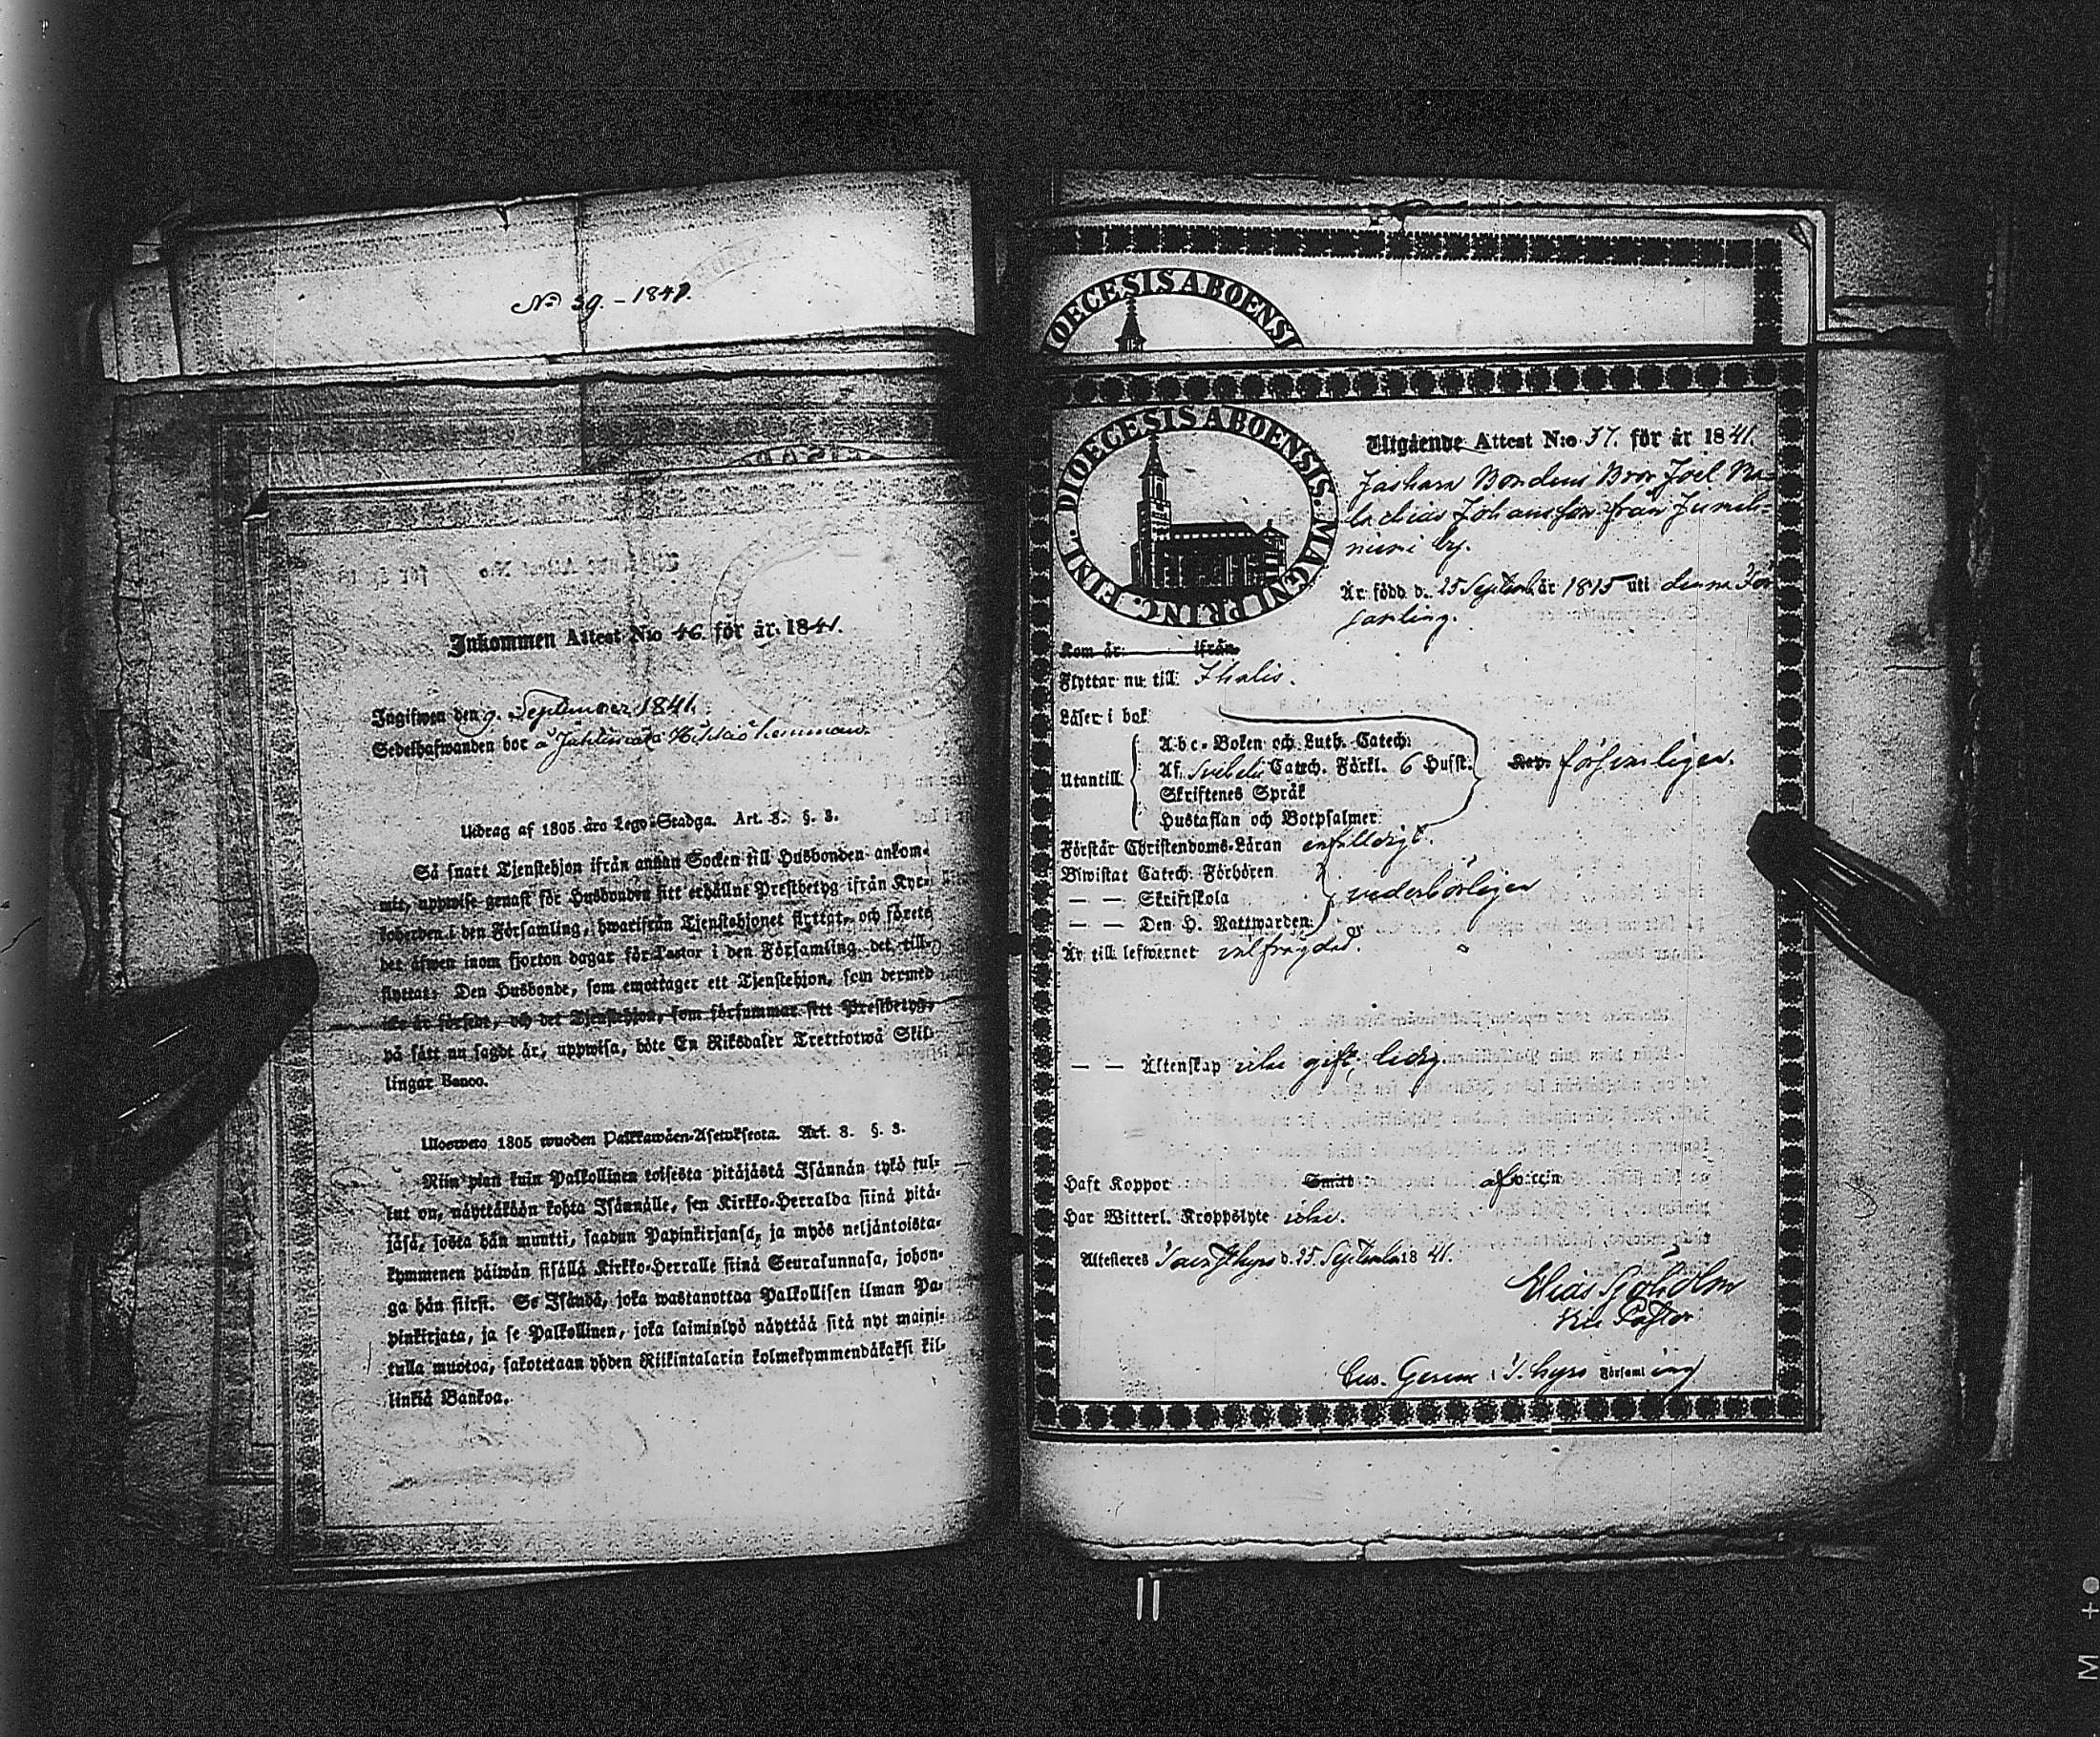 No 39. - 1841.
Inkommen Attest N:o 46. för år 1841.
Ingifwen den 9. September 1841.
Sedelhafwanden bor å hemman.
Utdrag af 1805 års Lego-Stadga. Art. 8. §. 3.
Så snart Tjenstehjon ifrån annan Socken till Husbonden ankom-
mit, uppwise genast för Husbonden sitt erhållne Prestbetyg ifrån Kyr-
koherden i den Församling, hwarifrån Tjenstehjonet flyttat, och förete
det äfwen inom fjorton dagar för Pastor i den Församling det till-
flyttat. Den Husbonde, som emottager ett Tjenstehjon, som dermed
icke är försedt, och det Tjenstehjon, som försummar sitt Prestbetyg,
på sätt nu sagdt är, uppwisa, böte En Riksdaler Trettiotwå Skil-
lingar Banco.
Ulosweto 1805 wuoden Palkkawäen-Asetuksesta. Art. 8. §. 3.
Niin pian kuin Palkollinen toisesta pitäjästä Isännän tykö tul-
lut on, näyttäköön kohta Isännälle, sen Kirkko-Herralda siinä pitä-
jäsä, josta hän muutti, saadun Papinkirjansa, ja myös neljäntoista-
kymmenen päiwän sisällä Kirkko-Herralle siinä Seurakunnasa, johon-
ga hän siirsi. Se Isändä, joka wastanottaa Palkollisen ilman Pa-
pinkirjata, ja se Palkollinen, joka laiminlyö näyttää sitä nyt maini-
tulla muotoa, sakotetaan yhden Riikintalarin kolmekymmendäkaksi kil-
linkiä Bankoa.
DIOECESIS ABOENSI
DIOECESIS ABOENSIS. MAGNI PRINC. FINL.
Utgående Attest N:o 37. för år 1841.
Bondens Bror Joel Ma-
Johansson från
niemi by.
Är född d. 25 Septemb. år 1815 uti denna För
samling.
Kom år ifrån
Flyttar nu till Ikalis.
Läser i bok
Utantill
Abc-Boken och Luth. Catech.
Af Svebelii Catech. Förkl. 6 Hufst.
Skriftenes Språk
Hustaflan och Botpsalmer
försvarligen.
Förstår Christendoms-Läran enfaldigt.
Biwistat Catech. Förhören
— — Skriftskola
— — Den H. Nattwarden
vederbörligen
Är till lefwernet välfrägdad.
— — Äktenskap icke gift, ledig.
Haft Koppor Smitt af waccin
Har Witterl. Kroppslyte icke.
Attesteras d. 25. September 1841.
Elias Sjöholm
Vice Pastor
i Församling